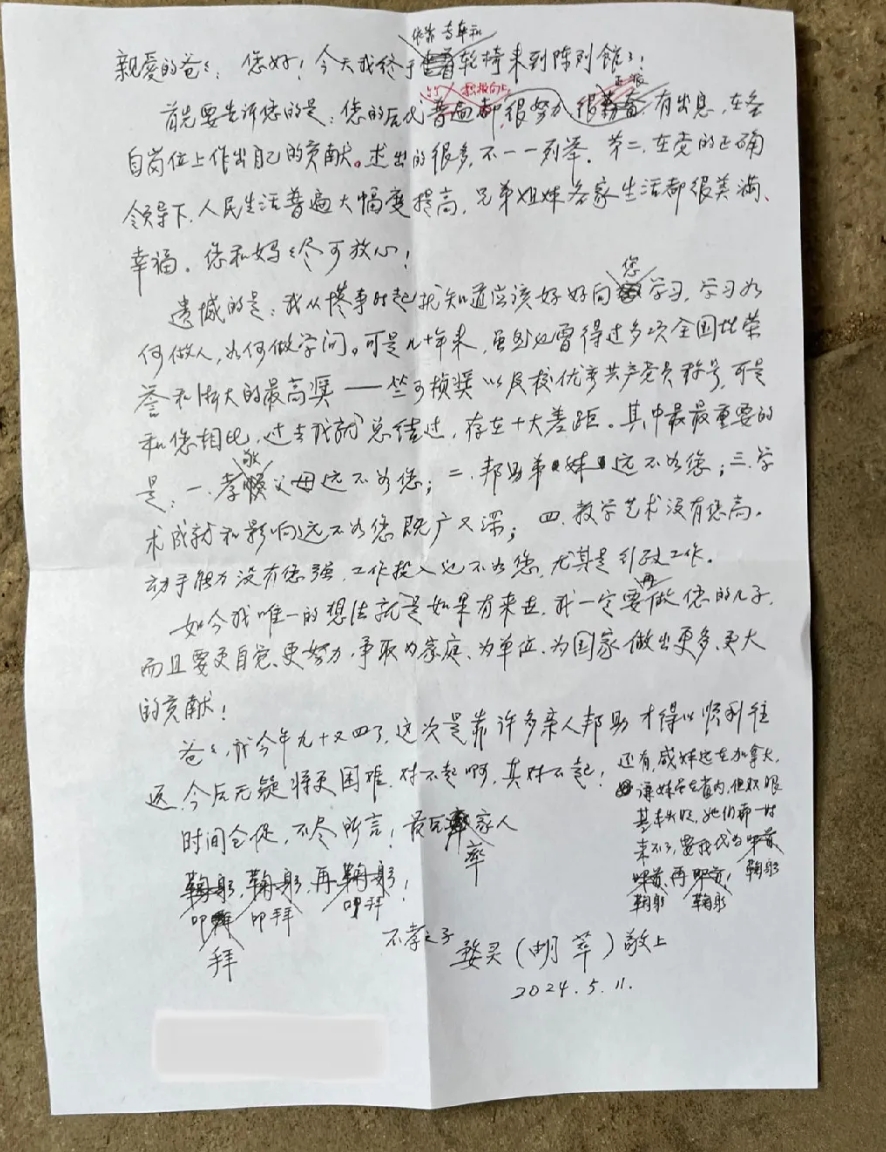 亲爱的爸爸：您好！今天我终于依靠专车和轮椅来到陈列馆了！
首先要告诉您的是：您的后代都很努力，积极向上，很正派，有出息，在各
自岗位上作出自己的贡献。杰出的很多，不一一列举。第二，在党的正确
领导下，人民生活普遍大幅度提高，兄弟姐妹各家生活都很美满、
幸福。您和妈妈尽可放心！
遗憾的是：我从懂事时起就知道应该好好向您学习，学习如
何做人，如何做学问。可是几十年来，虽然也曾得过多项全国性荣
誉和浙大的最高奖——竺可桢奖以及校优秀共产党员称号，可是
和您相比，过去我就总结过，存在十大差距。其中最最重要的
是：一.孝敬父母远不如您；二.邦助弟妹远不如您；三.学
术成就和影响远不如您既广又深；四.教学艺术没有您高。
动手能力没有您强，工作投入也不如您，尤其是行政工作。
如今我唯一的想法就是如果有来世，我一定要再做您的儿子，
而且要更自觉、更努力，争取为家庭、为单位、为国家做出更多、更大
的贡献！
爸爸，我今年九十又四了，这次是靠许多亲人邦助才得以顺利往
返，今后无疑将更困难，对不起啊，真对不起！
时间仓促，不尽所言！最后率家人
叩拜，叩拜，再叩拜！
还有，咸妹远在加拿大，
谦妹虽在省内，但双眼
基本失明，她们都一时
来不了，要我代为鞠躬
鞠躬，再鞠躬！
不孝之子
婺灵（胡萃）敬上
2024.5.11.